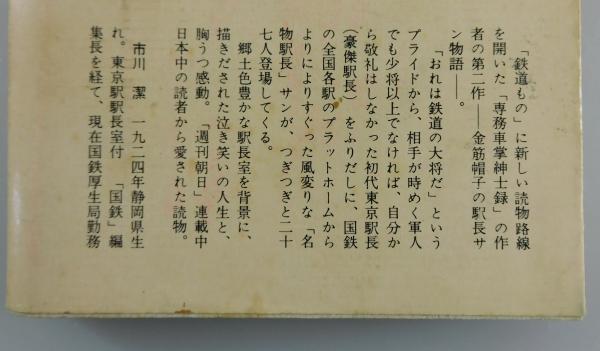 「鉄道もの」に新しい読物路線
を開いた「専務車掌紳士録」の作
者の第二作――金筋帽子の駅長サ
ン物語――。
「おれは鉄道の大将だ」という
プライドから、相手が時めく軍人
でも少将以上でなければ、自分か
ら敬礼はしなかった初代東京駅長
（豪傑駅長）をふりだしに、国鉄
の全国各駅のプラットホームから
よりによりすぐった風変りな「名
物駅長」サンが、つぎつぎと二十
七人登場してくる。
郷土色豊かな駅長室を背景に、
描きだされた泣き笑いの人生と、
胸うつ感動。「週刊朝日」連載中
日本中の読者から愛された読物。
市川 潔 一九二四年静岡県生
れ。東京駅駅長室付 「国鉄」編
集長を経て、現在国鉄厚生局勤務